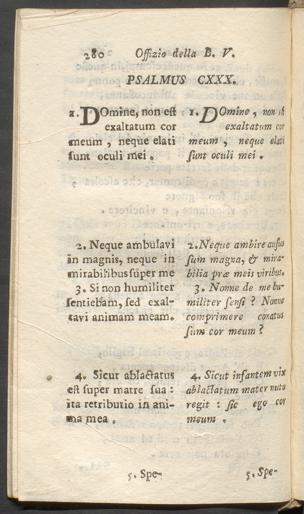 280 Offizio della B. V.
PSALMUS CXXX.
1. DOmine, non est
exaltatum cor
meum, neque elati
sunt oculi mei.
2. Neque ambulavi
in magnis, neque in
mirabilibus super me
3. Si non humiliter
sentiebam, sed exal-
tavi animam meam.
4. Sicut ablactatus
est super matre sua:
ita retributio in ani-
ma mea.
5. Spe-
1. DOmine, non
exaltatum cor
meum, neque elati
sunt oculi mei.
2. Neque ambire ausus
sum magna, & mira-
bilia præ meis viribus.
3. Nonne de me hu-
militer sensi? Nonne
comprimere conatus
sum cor meum?
4. Sicut infantem vix
ablactatum mater nutu
regit: sic ego cor
meum.
5. Spe-